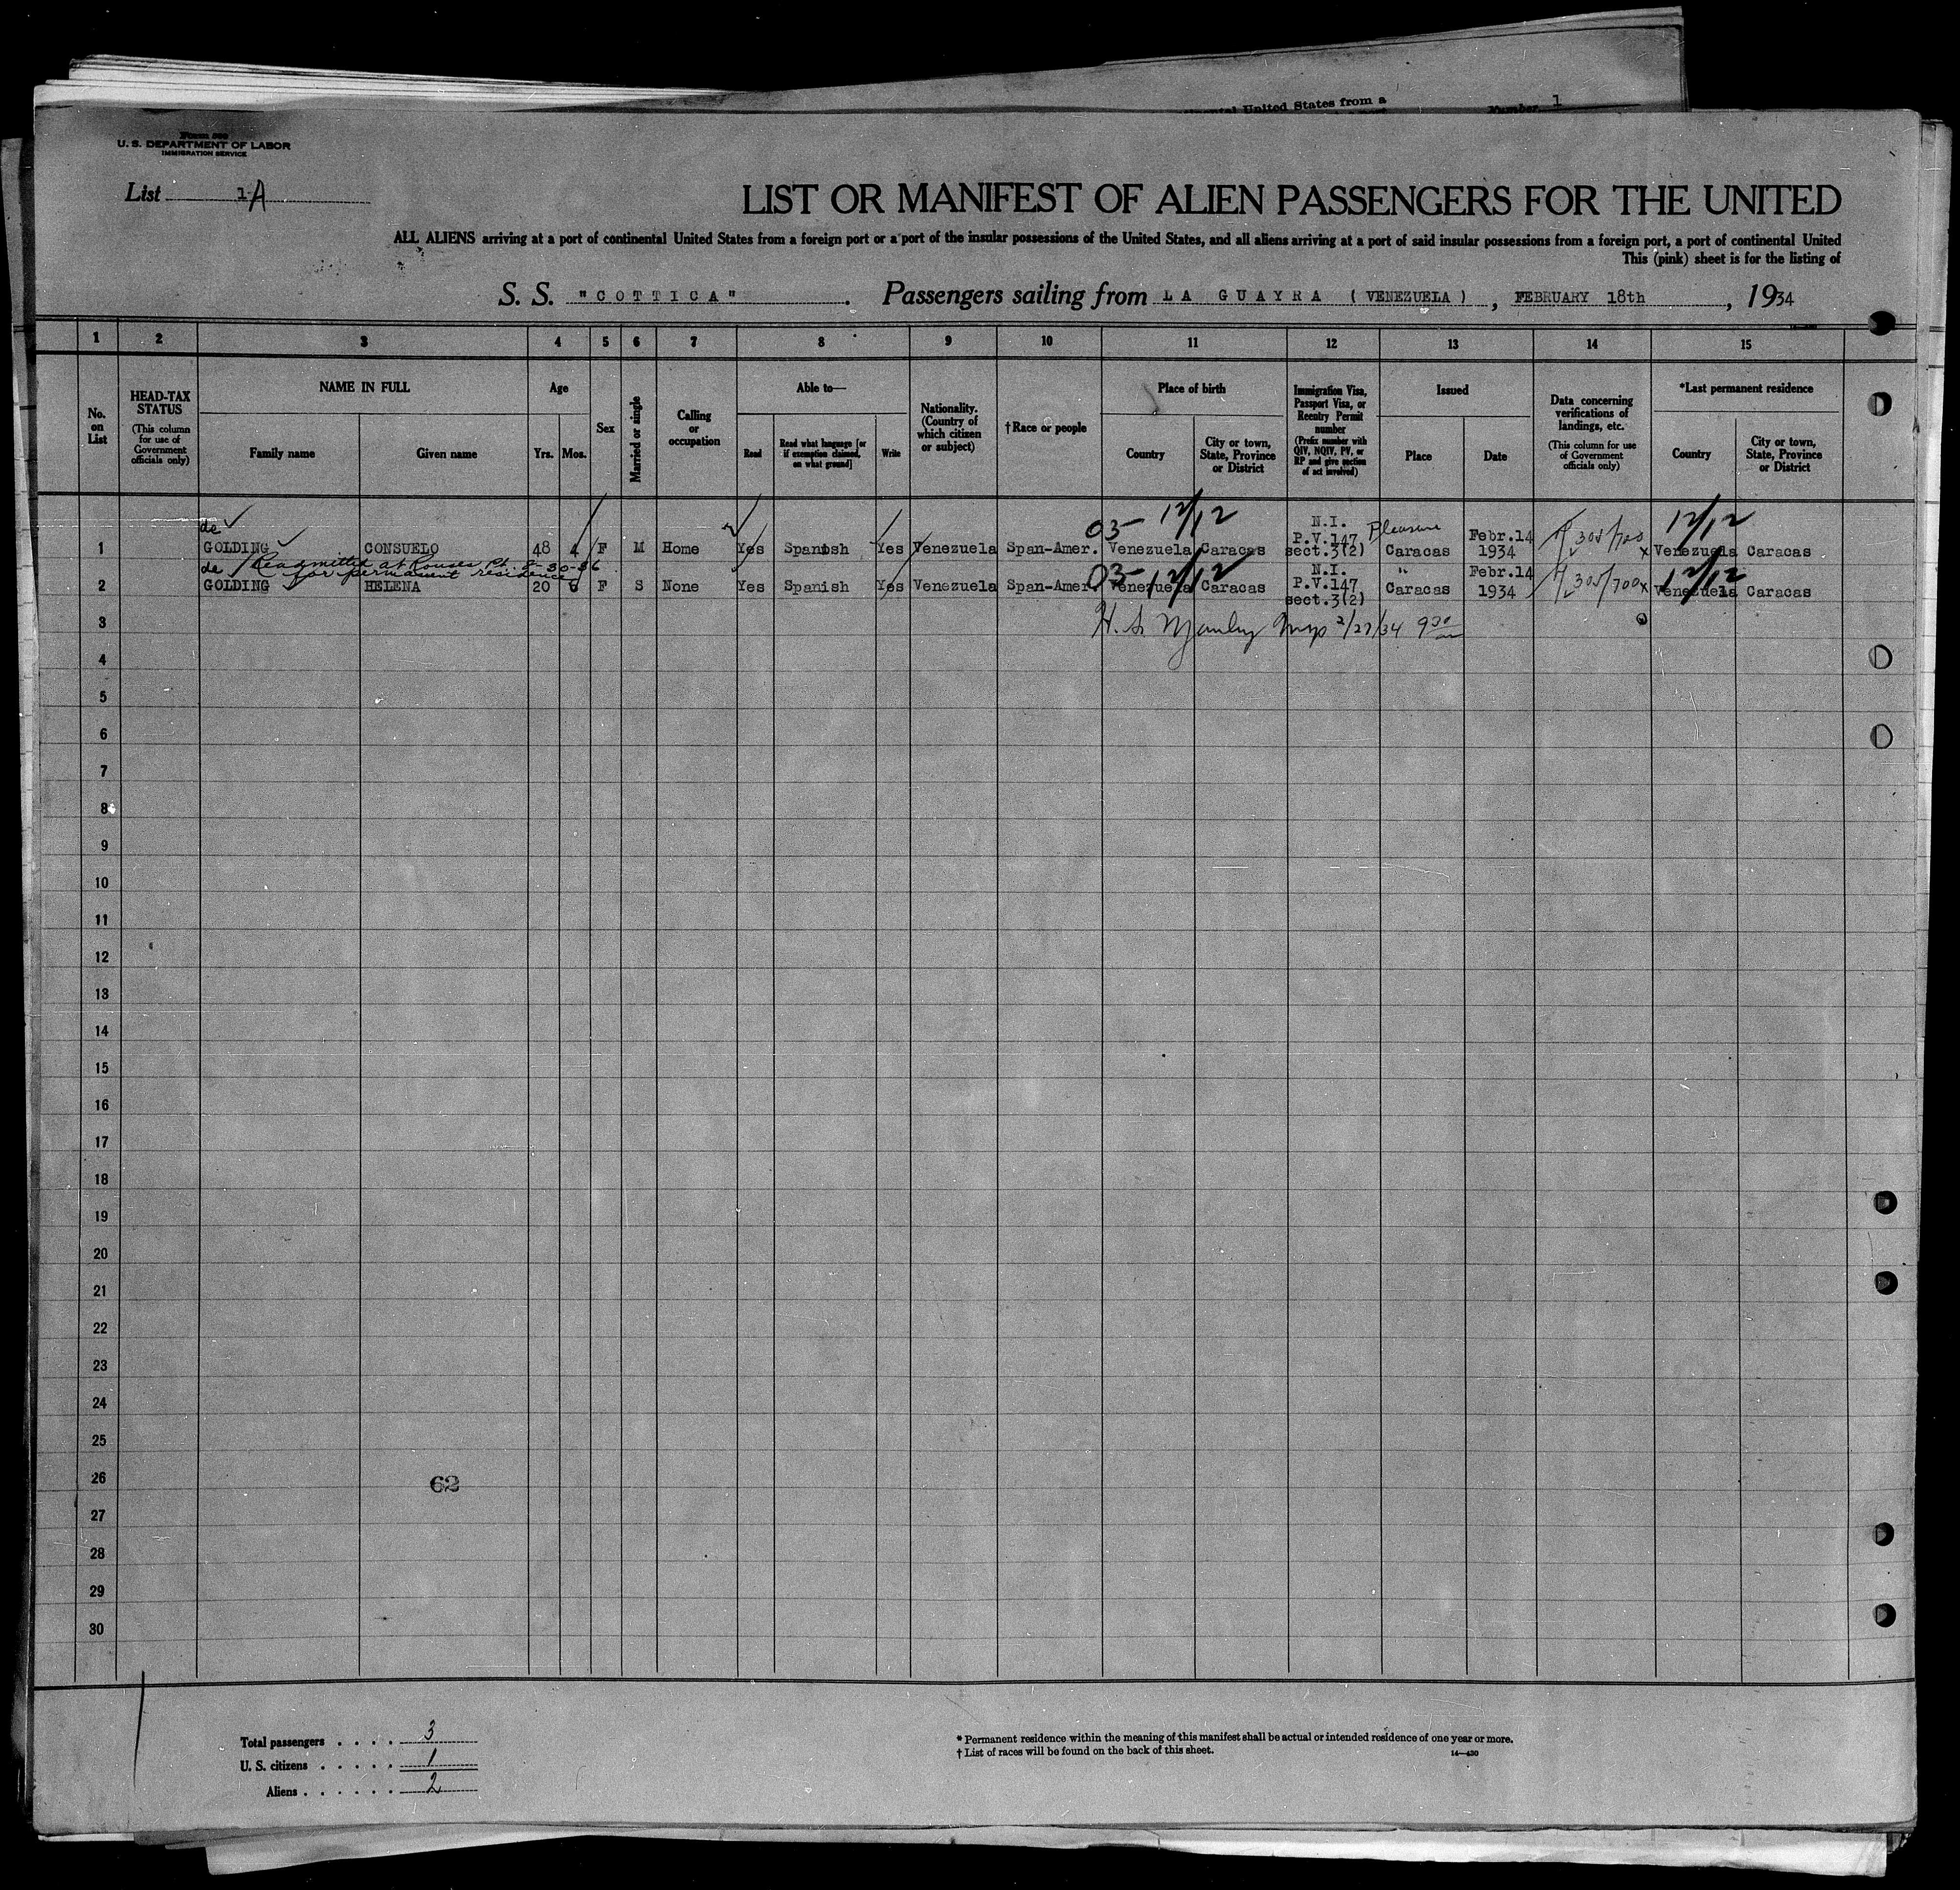 inental United States from a
Number 1
Form 500
U. S. DEPARTMENT OF LABOR
IMMIGRATION SERVICE
List 1A
LIST OR MANIFEST OF ALIEN PASSENGERS FOR THE UNITED
ALL ALIENS arriving at a port of continental United States from a foreign port or a port of the insular possessions of the United States, and all aliens arriving at a port of said insular possessions from a foreign port, a port of continental United
This (pink) sheet is for the listing of
S. S. "COTTICA". Passengers sailing from LA GUAYRA (VENEZUELA), FEBRUARY 18th, 1934
1 2 3 4 5 6 7 8 9 10 11 12 13 14 15
No. on List
HEAD-TAX STATUS
(This column for use of Government officials only)
NAME IN FULL
Family name Given name
Age
Yrs. Mos.
Sex
Married or single
Calling or occupation
Able to—
Read
Read what language [or if exemption claimed, on what ground]
Write
Nationality. (Country of which citizen or subject)
†Race or people
Place of birth
Country
City or town, State, Province or District
Immigration Visa, Passport Visa, or Reentry Permit number
(Prefix number with QIV, NQIV, PV, or RP and give section of act involved)
Issued
Place Date
Data concerning verifications of landings, etc.
(This column for use of Government officials only)
*Last permanent residence
Country
City or town, State, Province or District
de 03- 12/12 N.I. Pleasure Febr.14 12/12
1 GOLDING CONSUELO 48 4 F M Home Yes Spanish Yes Venezuela Span-Amer. Venezuela Caracas P.V.147 sect.3(2) Caracas 1934 305/700 x Venezuela Caracas
Readmitted at Rouses Pt. 8-30-36
for permanent residence
de 03- 12/12 N.I. " Febr.14 12/12
2 GOLDING HELENA 20 6 F S None Yes Spanish Yes Venezuela Span-Amer. Venezuela Caracas P.V.147 sect.3(2) Caracas 1934 305/700 x Venezuela Caracas
3 H. S. 2/27/34 9 30
4
5
6
7
8
9
10
11
12
13
14
15
16
17
18
19
20
21
22
23
24
25
26 62
27
28
29
30
Total passengers . . . . 3
U. S. citizens . . . . . 1
Aliens . . . . . . 2
* Permanent residence within the meaning of this manifest shall be actual or intended residence of one year or more.
† List of races will be found on the back of this sheet.
14—430